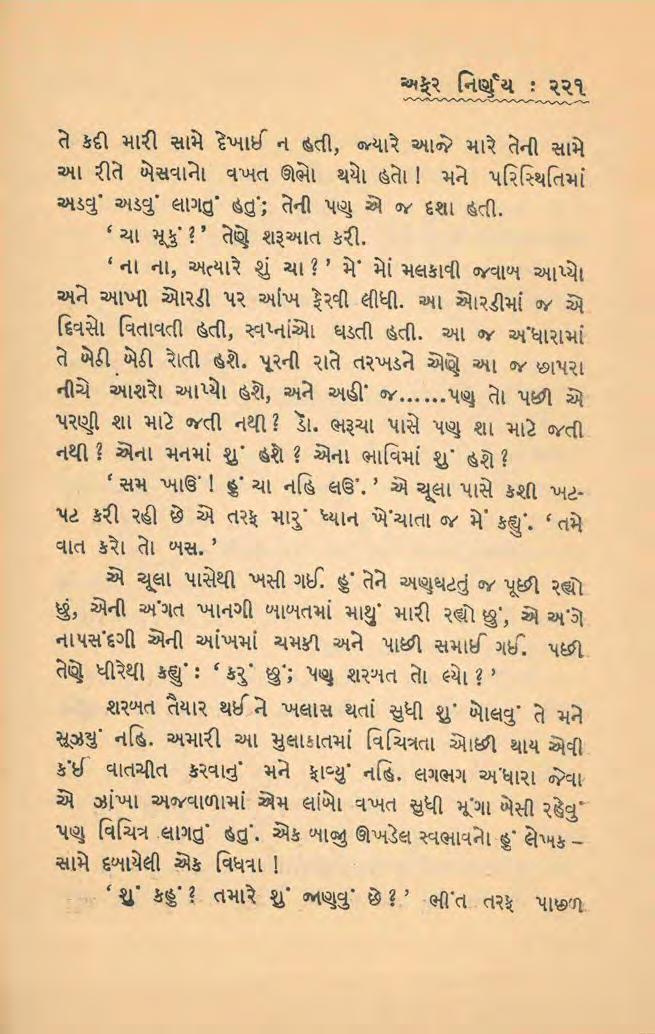 અફર નિર્ણય : ૨૨૧
તે કદી મારી સામે દેખાઈ ન હતી, જ્યારે આજે મારે તેની સામે
આ રીતે બેસવાનો વખત ઊભો થયો હતો ! મને પરિસ્થિતિમાં
અડવું અડવું લાગતું હતું; તેની પણ એ જ દશા હતી.
‘ ચા મૂકું ?’ તેણે શરૂઆત કરી.
‘ ના ના, અત્યારે શું ચા ? ’ મેં મોં મલકાવી જવાબ આપ્યો
અને આખી ઓરડી પર આંખ ફેરવી લીધી. આ ઓરડીમાં જ એ
દિવસો વિતાવતી હતી, સ્વપ્નાંઓ ઘડતી હતી. આ જ અંધારામાં
તે બેઠી બેઠી રોતી હશે. પૂરની રાતે તરખડને એણે આ જ છાપરા
નીચે આશરો આપ્યો હશે, અને અહીં જ......પણ તો પછી એ
પરણી શા માટે જતી નથી ? ડૉ. ભરૂચા પાસે પણ શા માટે જતી
નથી ? એના મનમાં શું હશે ? એના ભાવિમાં શું હશે ?
‘ સમ ખાઉં ! હું ચા નહિ લઉં. ’ એ ચૂલા પાસે કશી ખટ-
પટ કરી રહી છે એ તરફ મારું ધ્યાન ખેંચાતા જ મેં કહ્યું. ‘ તમે
વાત કરો તો બસ. ’
એ ચૂલા પાસેથી ખસી ગઈ. હું તેને અણઘટતું જ પૂછી રહ્યો
છું, એની અંગત ખાનગી બાબતમાં માથું મારી રહ્યો છું, એ અંગે
નાપસંદગી એની આંખમાં ચમકી અને પાછી સમાઈ ગઈ. પછી
તેણે ધીરેથી કહ્યું : ‘ કરું છું; પણ શરબત તો લ્યો ? ’
શરબત તૈયાર થઈ ને ખલાસ થતાં સુધી શું બોલવું તે મને
સૂઝ્યું નહિ. અમારી આ મુલાકાતમાં વિચિત્રતા ઓછી થાય એવી
કંઈ વાતચીત કરવાનું મને ફાવ્યું નહિ. લગભગ અંધારા જેવા
એ ઝાંખા અજવાળામાં એમ લાંબો વખત સુધી મૂંગા બેસી રહેવું
પણ વિચિત્ર લાગતું હતું. એક બાજુ ઊખડેલ સ્વભાવનો હું લેખક –
સામે દબાયેલી એક વિધવા !
‘ શું કહું ? તમારે શું જાણવું છે ? ’ ભીંત તરફ પાછળ